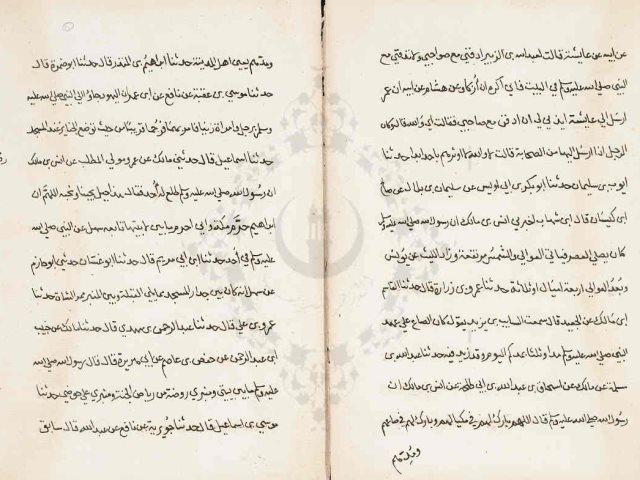 عن ابيه عن عايشة قالت لعبد الله بن الزبير ادفني مع صواحبي ولا تدفني مع
النبي صلى الله عليه وسلم في البيت فاني اكره ان أزكى وعن هشام عن ابيه ان عمر
ارسل الى عايشة ايذني لي ان ادفن مع صاحبي فقالت اي والله قال وكان
الرجل اذا ارسل اليها من الصحابة قالت لا والله لا اوثرهم باحد ابدا حدثنا
ايوب بن سليمان حدثنا ابو بكر بن ابي اويس عن سليمان بن بلال عن صالح
بن كيسان قال ابن شهاب اخبرني انس بن مالك ان رسول الله صلى الله عليه وسلم
كان يصلي العصر فياتي العوالي والشمس مرتفعة وزاد الليث عن يونس
وبعد العوالي اربعة اميال او ثلاثة حدثنا عمرو بن زرارة قال حدثنا القاسم
بن مالك عن الجعيد قال سمعت السايب بن يزيد يقول كان الصاع على عهد
النبي صلى الله عليه وسلم مدا وثلثا بمدكم اليوم وقد زيد فيه حدثنا عبد الله بن
مسلمة عن مالك عن اسحاق بن عبد الله بن ابي طلحة عن انس بن مالك ان
رسول الله صلى الله عليه وسلم قال اللهم بارك لهم في مكيالهم وبارك لهم في صاعهم
ومدهم
ومدهم يعني اهل المدينة حدثنا ابراهيم بن المنذر قال حدثنا ابو ضمرة قال
حدثنا موسى بن عقبة عن نافع عن ابن عمر ان اليهود جاؤا الى النبي صلى الله عليه
وسلم برجل وامراة زنيا فامر بهما فرجما قريبا من حيث توضع الجنايز عند المسجد
حدثنا اسماعيل قال حدثني مالك عن عمرو مولى المطلب عن انس بن مالك
ان رسول الله صلى الله عليه وسلم طلع له أحد فقال هذا جبل يحبنا ونحبه اللهم ان
ابراهيم حرم مكة واني احرم ما بين لابتيها تابعه سهل عن النبي صلى الله
عليه وسلم في أحد حدثنا ابن ابي مريم قال حدثنا ابو غسان حدثني ابو حازم
عن سهل انه كان بين جدار المسجد مما يلي القبلة وبين المنبر ممر الشاة حدثنا
عمرو بن علي قال حدثنا عبد الرحمن بن مهدي قال حدثنا مالك عن خبيب
بن عبد الرحمن عن حفص بن عاصم عن ابي هريرة قال قال رسول الله صلى الله
عليه وسلم ما بين بيتي ومنبري روضة من رياض الجنة ومنبري على حوضي حدثنا
موسى بن اسماعيل قال حدثنا جويرية عن نافع عن عبد الله قال سابق